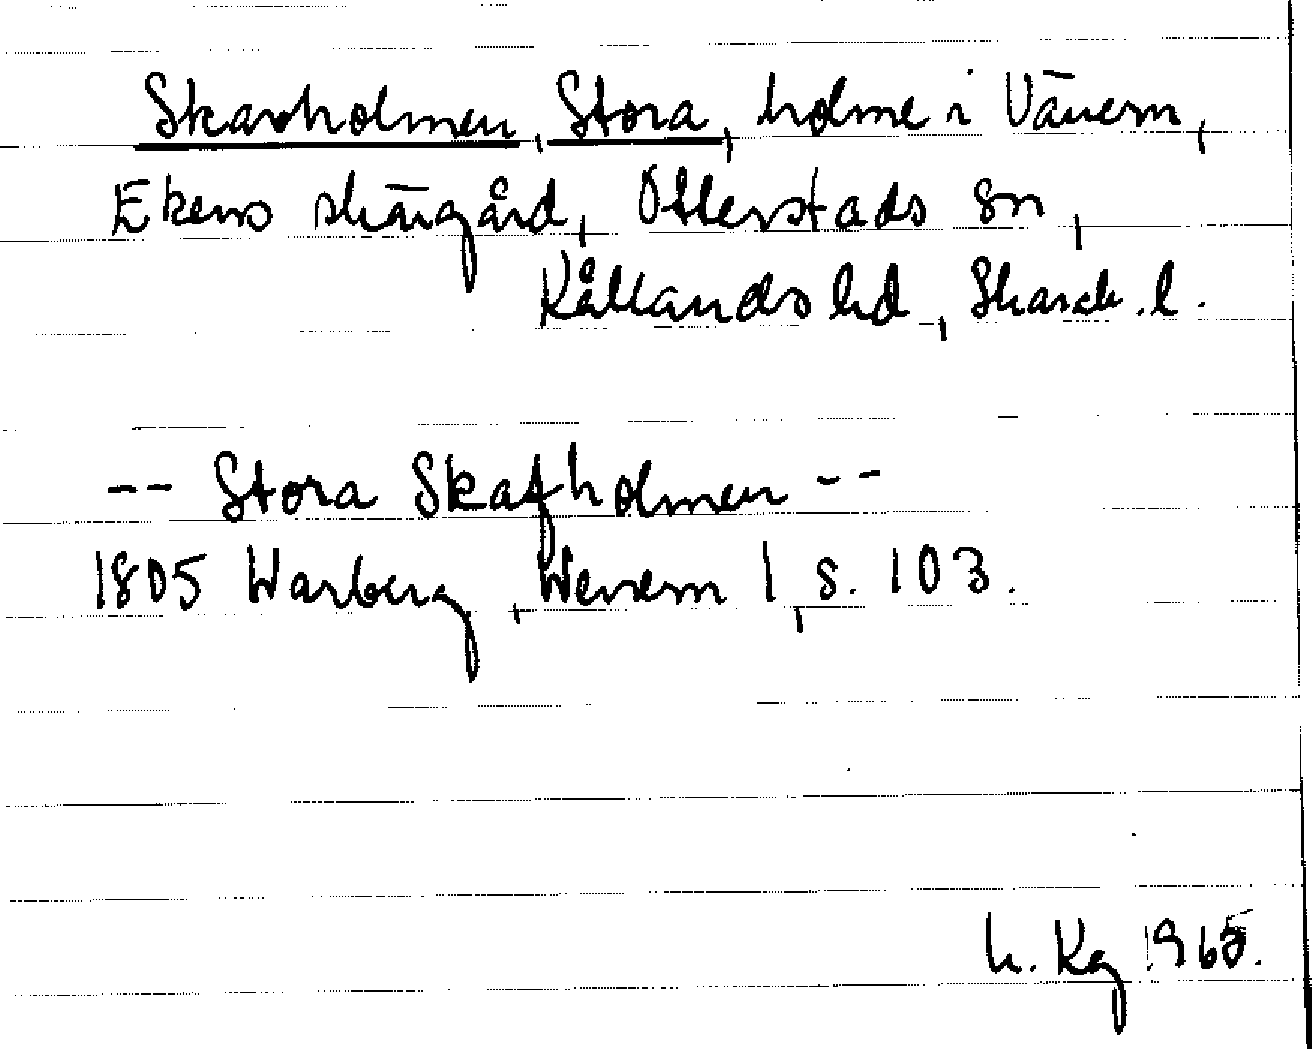 Skavholmen, Stora, holme i Vänern,
Ekens skärgård, Otterstads sn,
Kållands hd, Skarab. l.
-- Stora Skafholmen --
1805 Warberg, Wenern 1, s. 103.
h. Kg 1965.